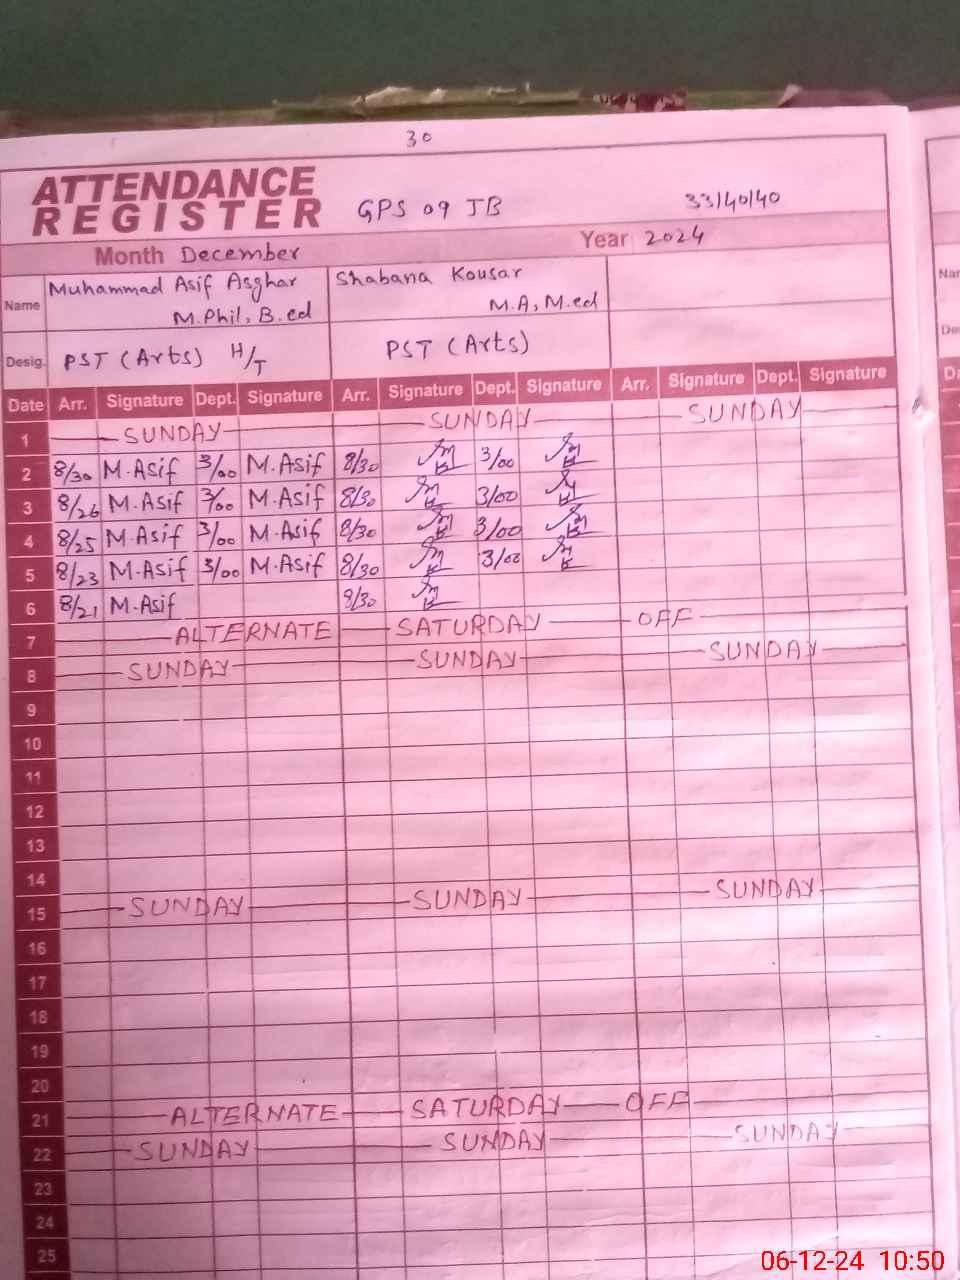 30
ATTENDANCE
REGISTER GPS 09 JB 33/40/40
Month December Year 2024
Name Muhammad Asif Asghar M.Phil, B.ed Shabana Kousar M.A, M.ed
Desig. PST (Arts) H/T PST (Arts)
Date Arr. Signature Dept. Signature Arr. Signature Dept. Signature Arr. Signature Dept. Signature
1 SUNDAY SUNDAY SUNDAY
2 8/30 M.Asif 3/00 M.Asif 8/30 3/00
3 8/26 M.Asif 3/00 M.Asif 8/30 3/00
4 8/25 M.Asif 3/00 M.Asif 8/30 3/00
5 8/23 M.Asif 3/00 M.Asif 8/30 3/00
6 8/21 M.Asif 8/30
7 ALTERNATE SATURDAY OFF
8 SUNDAY SUNDAY SUNDAY
9
10
11
12
13
14
15 SUNDAY SUNDAY SUNDAY
16
17
18
19
20
21 ALTERNATE SATURDAY OFF
22 SUNDAY SUNDAY SUNDAY
23
24
25
06-12-24 10:50